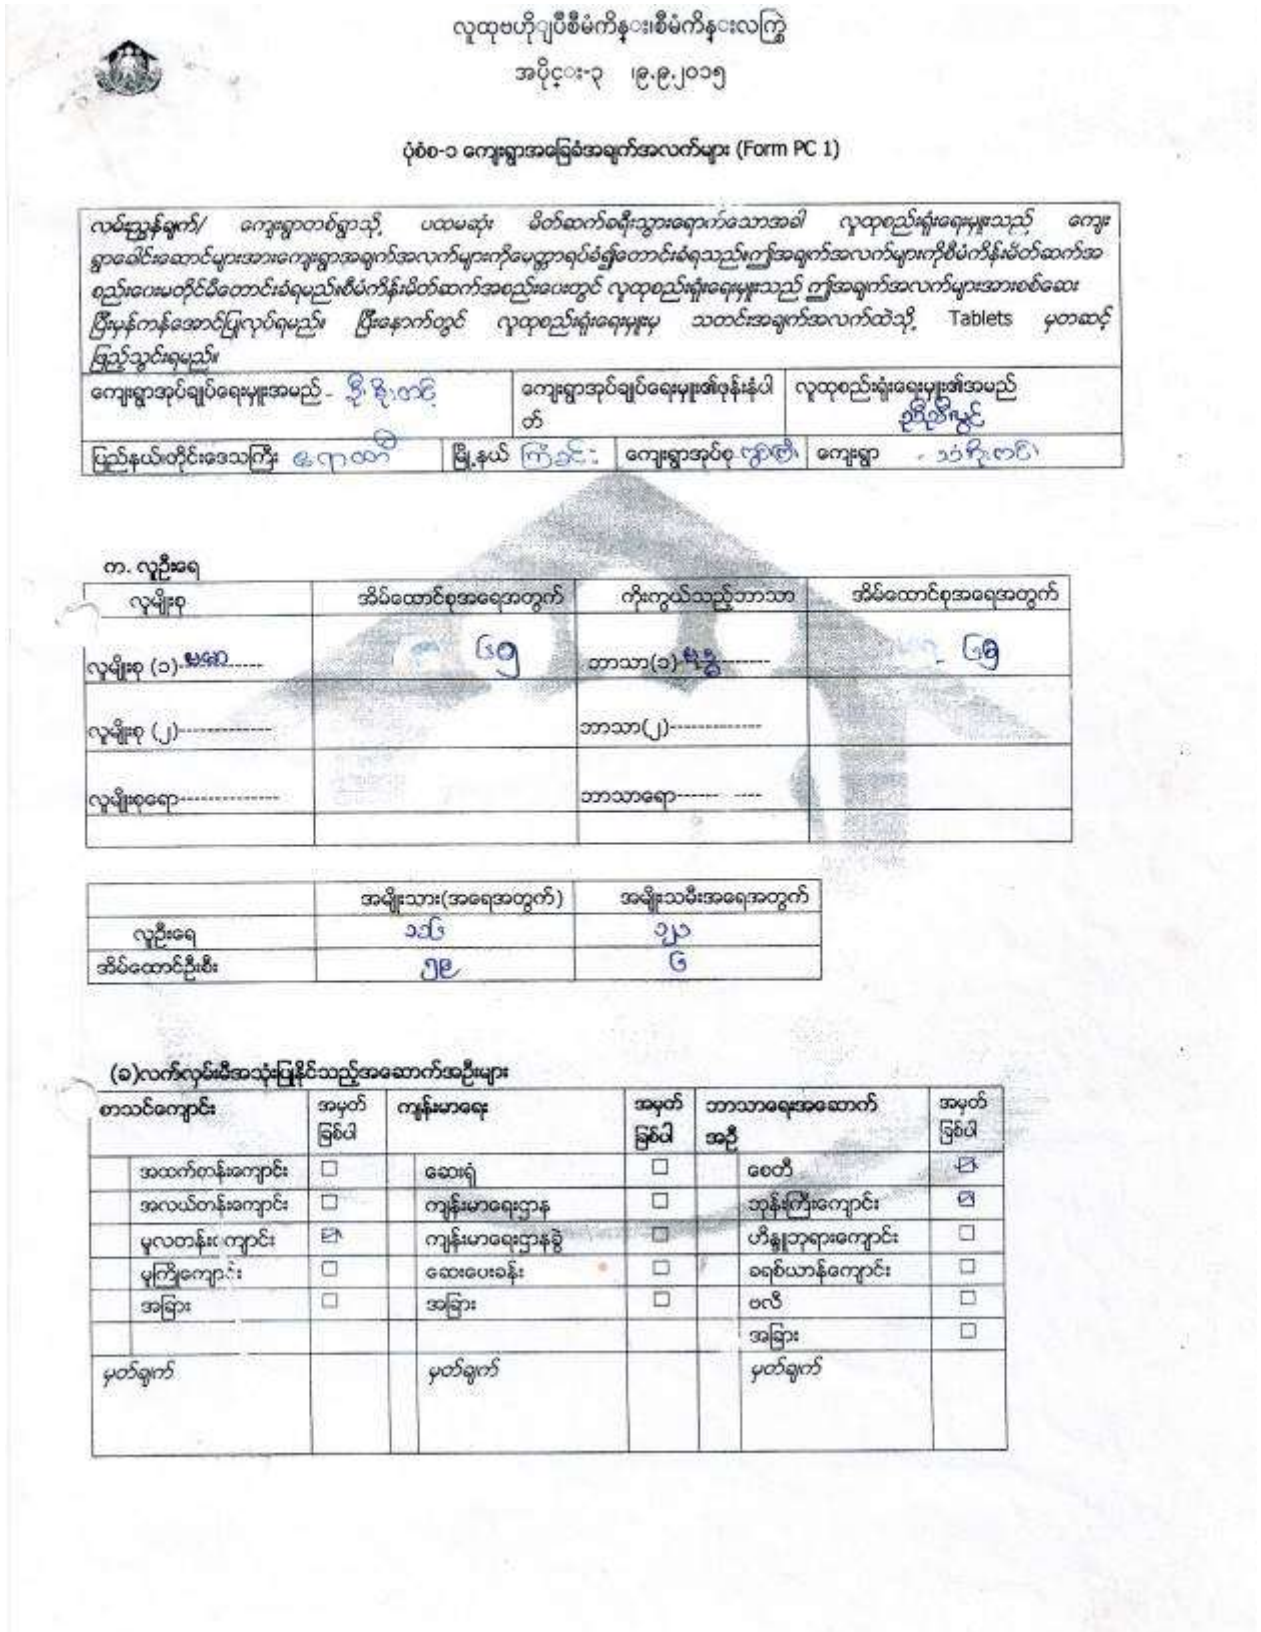 လူထုဗဟိုျပဳစီမံကိန္း၊စီမံကိန္းလက္စြဲ
အပိုင္း-၃ ၊၉.၉.၂၀၁၅
ပုံစံစ-၁ ကျေးရွာအခြေခံအချက်အလက်များ (Form PC 1)
လမ်းညွှန်ချက်/ ကျေးရွာတစ်ရွာသို့ ပထမဆုံး မိတ်ဆက်ခရီးသွားရောက်သောအခါ လူထုစည်းရုံးရေးမှူးသည် ကျေး
ရွာခေါင်းဆောင်များအားကျေးရွာအချက်အလက်များကိုမေတ္တာရပ်ခံ၍တောင်းခံရသည်။ဤအချက်အလက်များကိုစီမံကိန်းမိတ်ဆက်အ
စည်းဝေးမတိုင်မီတောင်းခံရမည်။စီမံကိန်းမိတ်ဆက်အစည်းဝေးတွင် လူထုစည်းရုံးရေးမှူးသည် ဤအချက်အလက်များအားစစ်ဆေး
ပြီးမှန်ကန်အောင်ပြုလုပ်ရမည်။ ပြီးနောက်တွင် လူထုစည်းရုံးရေးမှူးမှ သတင်းအချက်အလက်ထဲသို့ Tablets မှတဆင့်
ဖြည့်သွင်းရမည်။
ကျေးရွာအုပ်ချုပ်ရေးမှူးအမည် - ဦးစိုးတင့် ကျေးရွာအုပ်ချုပ်ရေးမှူး၏ဖုန်းနံပါ လူထုစည်းရုံးရေးမှူး၏အမည်
တ်
ပြည်နယ်၊တိုင်းဒေသကြီး ဧရာဝတီ မြို့နယ် ကြံခင်း ကျေးရွာအုပ်စု ကျေးရွာ
က. လူဦးရေ
လူမျိုးစု အိမ်ထောင်စုအရေအတွက် ကိုးကွယ်သည့်ဘာသာ အိမ်ထောင်စုအရေအတွက်
လူမျိုးစု (၁) ဗမာ ------ ၆၅ ဘာသာ(၁) ဗုဒ္ဓ ------- ၆၅
လူမျိုးစု (၂)------------- ဘာသာ(၂)-------------
လူမျိုးစုရော-------------- ဘာသာရော------ ----
အမျိုးသား(အရေအတွက်) အမျိုးသမီးအရေအတွက်
လူဦးရေ ၁၁၆ ၁၂၁
အိမ်ထောင်ဦးစီး ၅၉ ၆
(ခ)လက်လှမ်းမီအသုံးပြုနိုင်သည့်အဆောက်အဦးများ
စာသင်ကျောင်း အမှတ် ကျန်းမာရေး အမှတ် ဘာသာရေးအဆောက် အမှတ်
ခြစ်ပါ ခြစ်ပါ အဦ ခြစ်ပါ
အထက်တန်းကျောင်း ☐ ဆေးရုံ ☐ စေတီ ☑
အလယ်တန်းကျောင်း ☐ ကျန်းမာရေးဌာန ☐ ဘုန်းကြီးကျောင်း ☑
မူလတန်းကျောင်း ☑ ကျန်းမာရေးဌာနခွဲ ☐ ဟိန္ဒူဘုရားကျောင်း ☐
မူကြိုကျောင်း ☐ ဆေးပေးခန်း ☐ ခရစ်ယာန်ကျောင်း ☐
အခြား ☐ အခြား ☐ ဗလီ ☐
အခြား ☐
မှတ်ချက် မှတ်ချက် မှတ်ချက်